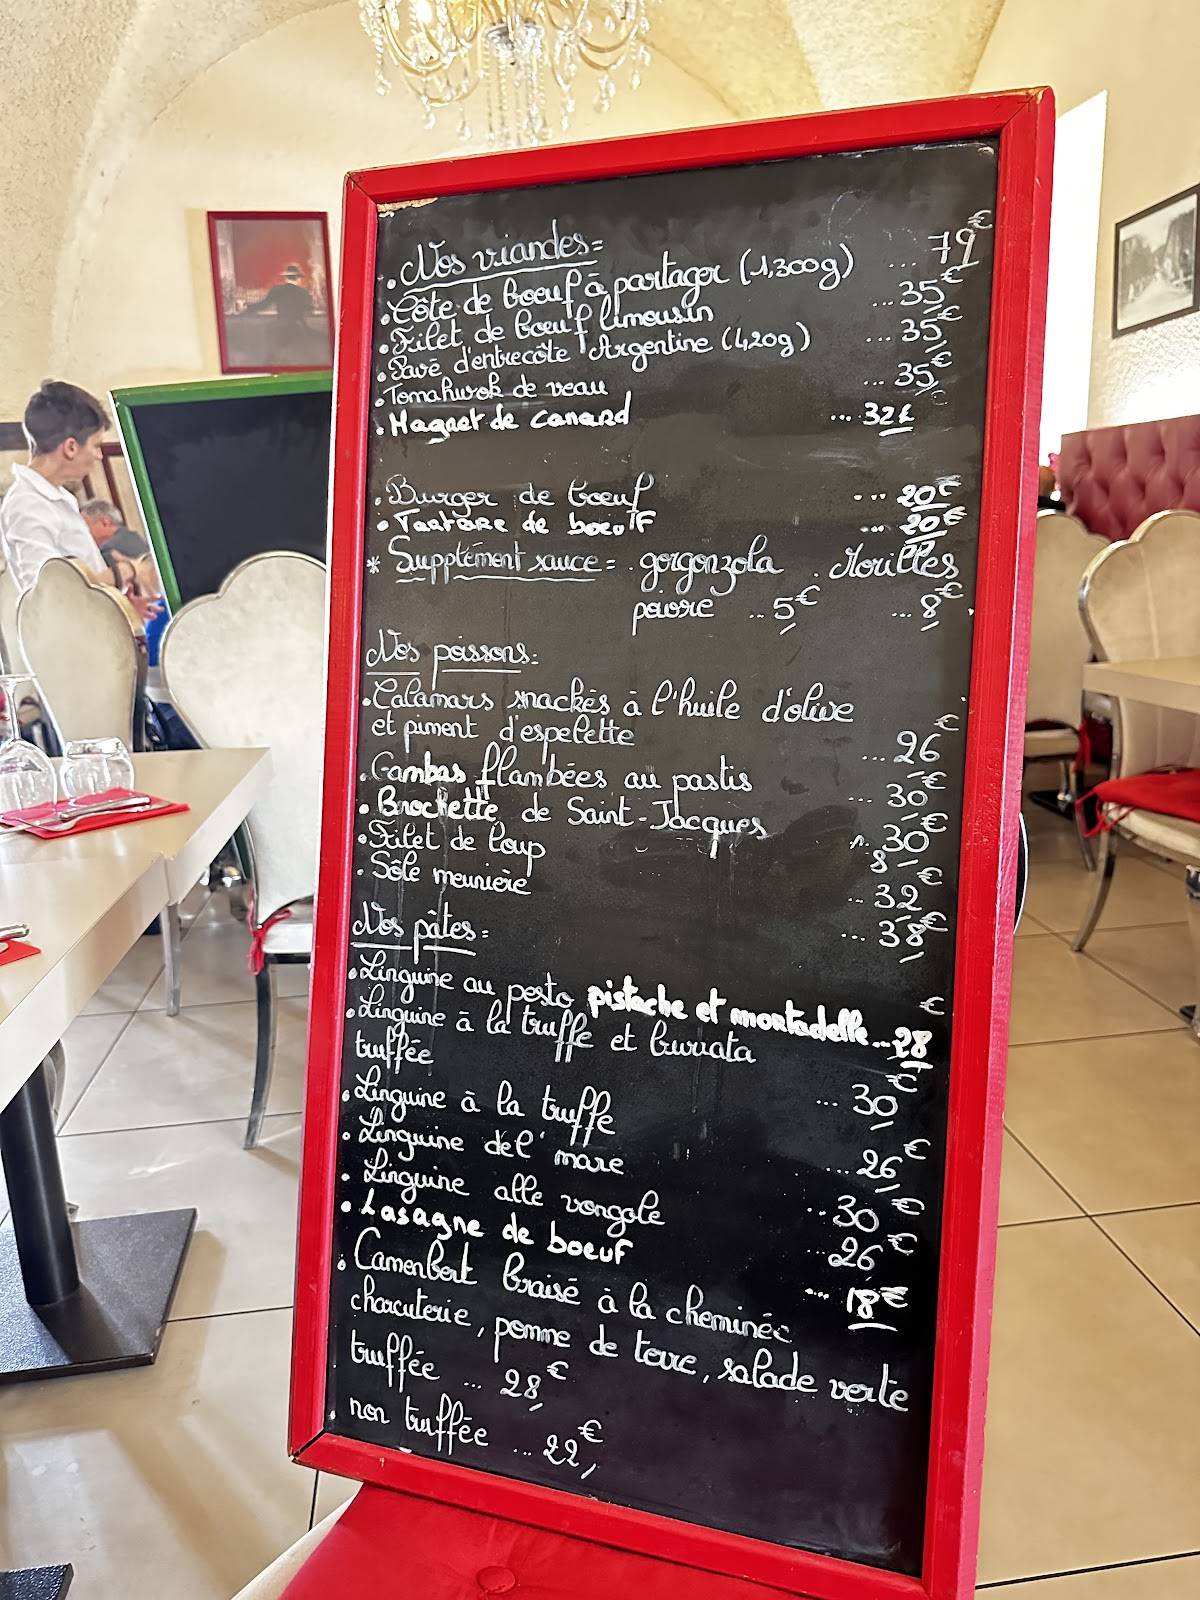 . Nos viandes =
. Côte de boeuf à partager (1,300g) ... 79€
. Filet de boeuf limousin ... 35€
. Pavé d'entrecôte Argentine (420g) ... 35€
. Tomahwok de veau ... 35€
. Magret de canard ... 32€
. Burger de boeuf ... 20€
. Tartare de boeuf ... 20€
* Supplément sauce = . gorgonzola . Morilles
poivre ... 5€ ... 8€
Nos poissons :
. Calamars snackés à l'huile d'olive
et piment d'espelette ... 26€
. Gambas flambées au pastis ... 30€
. Brochette de Saint-Jacques ... 30€
. Filet de loup ... 32€
. Sôle meunière ... 38€
Nos pâtes =
. Linguine au pesto pistache et mortadelle ... 28€
. Linguine à la truffe et burrata
truffée ... 30€
. Linguine à la truffe ... 26€
. Linguine del' mare ... 30€
. Linguine alle vongole ... 26€
. Lasagne de boeuf ... 18€
. Camenbert braisé à la cheminée
charcuterie, pomme de terre, salade verte
truffée ... 28€
. non truffée ... 22€